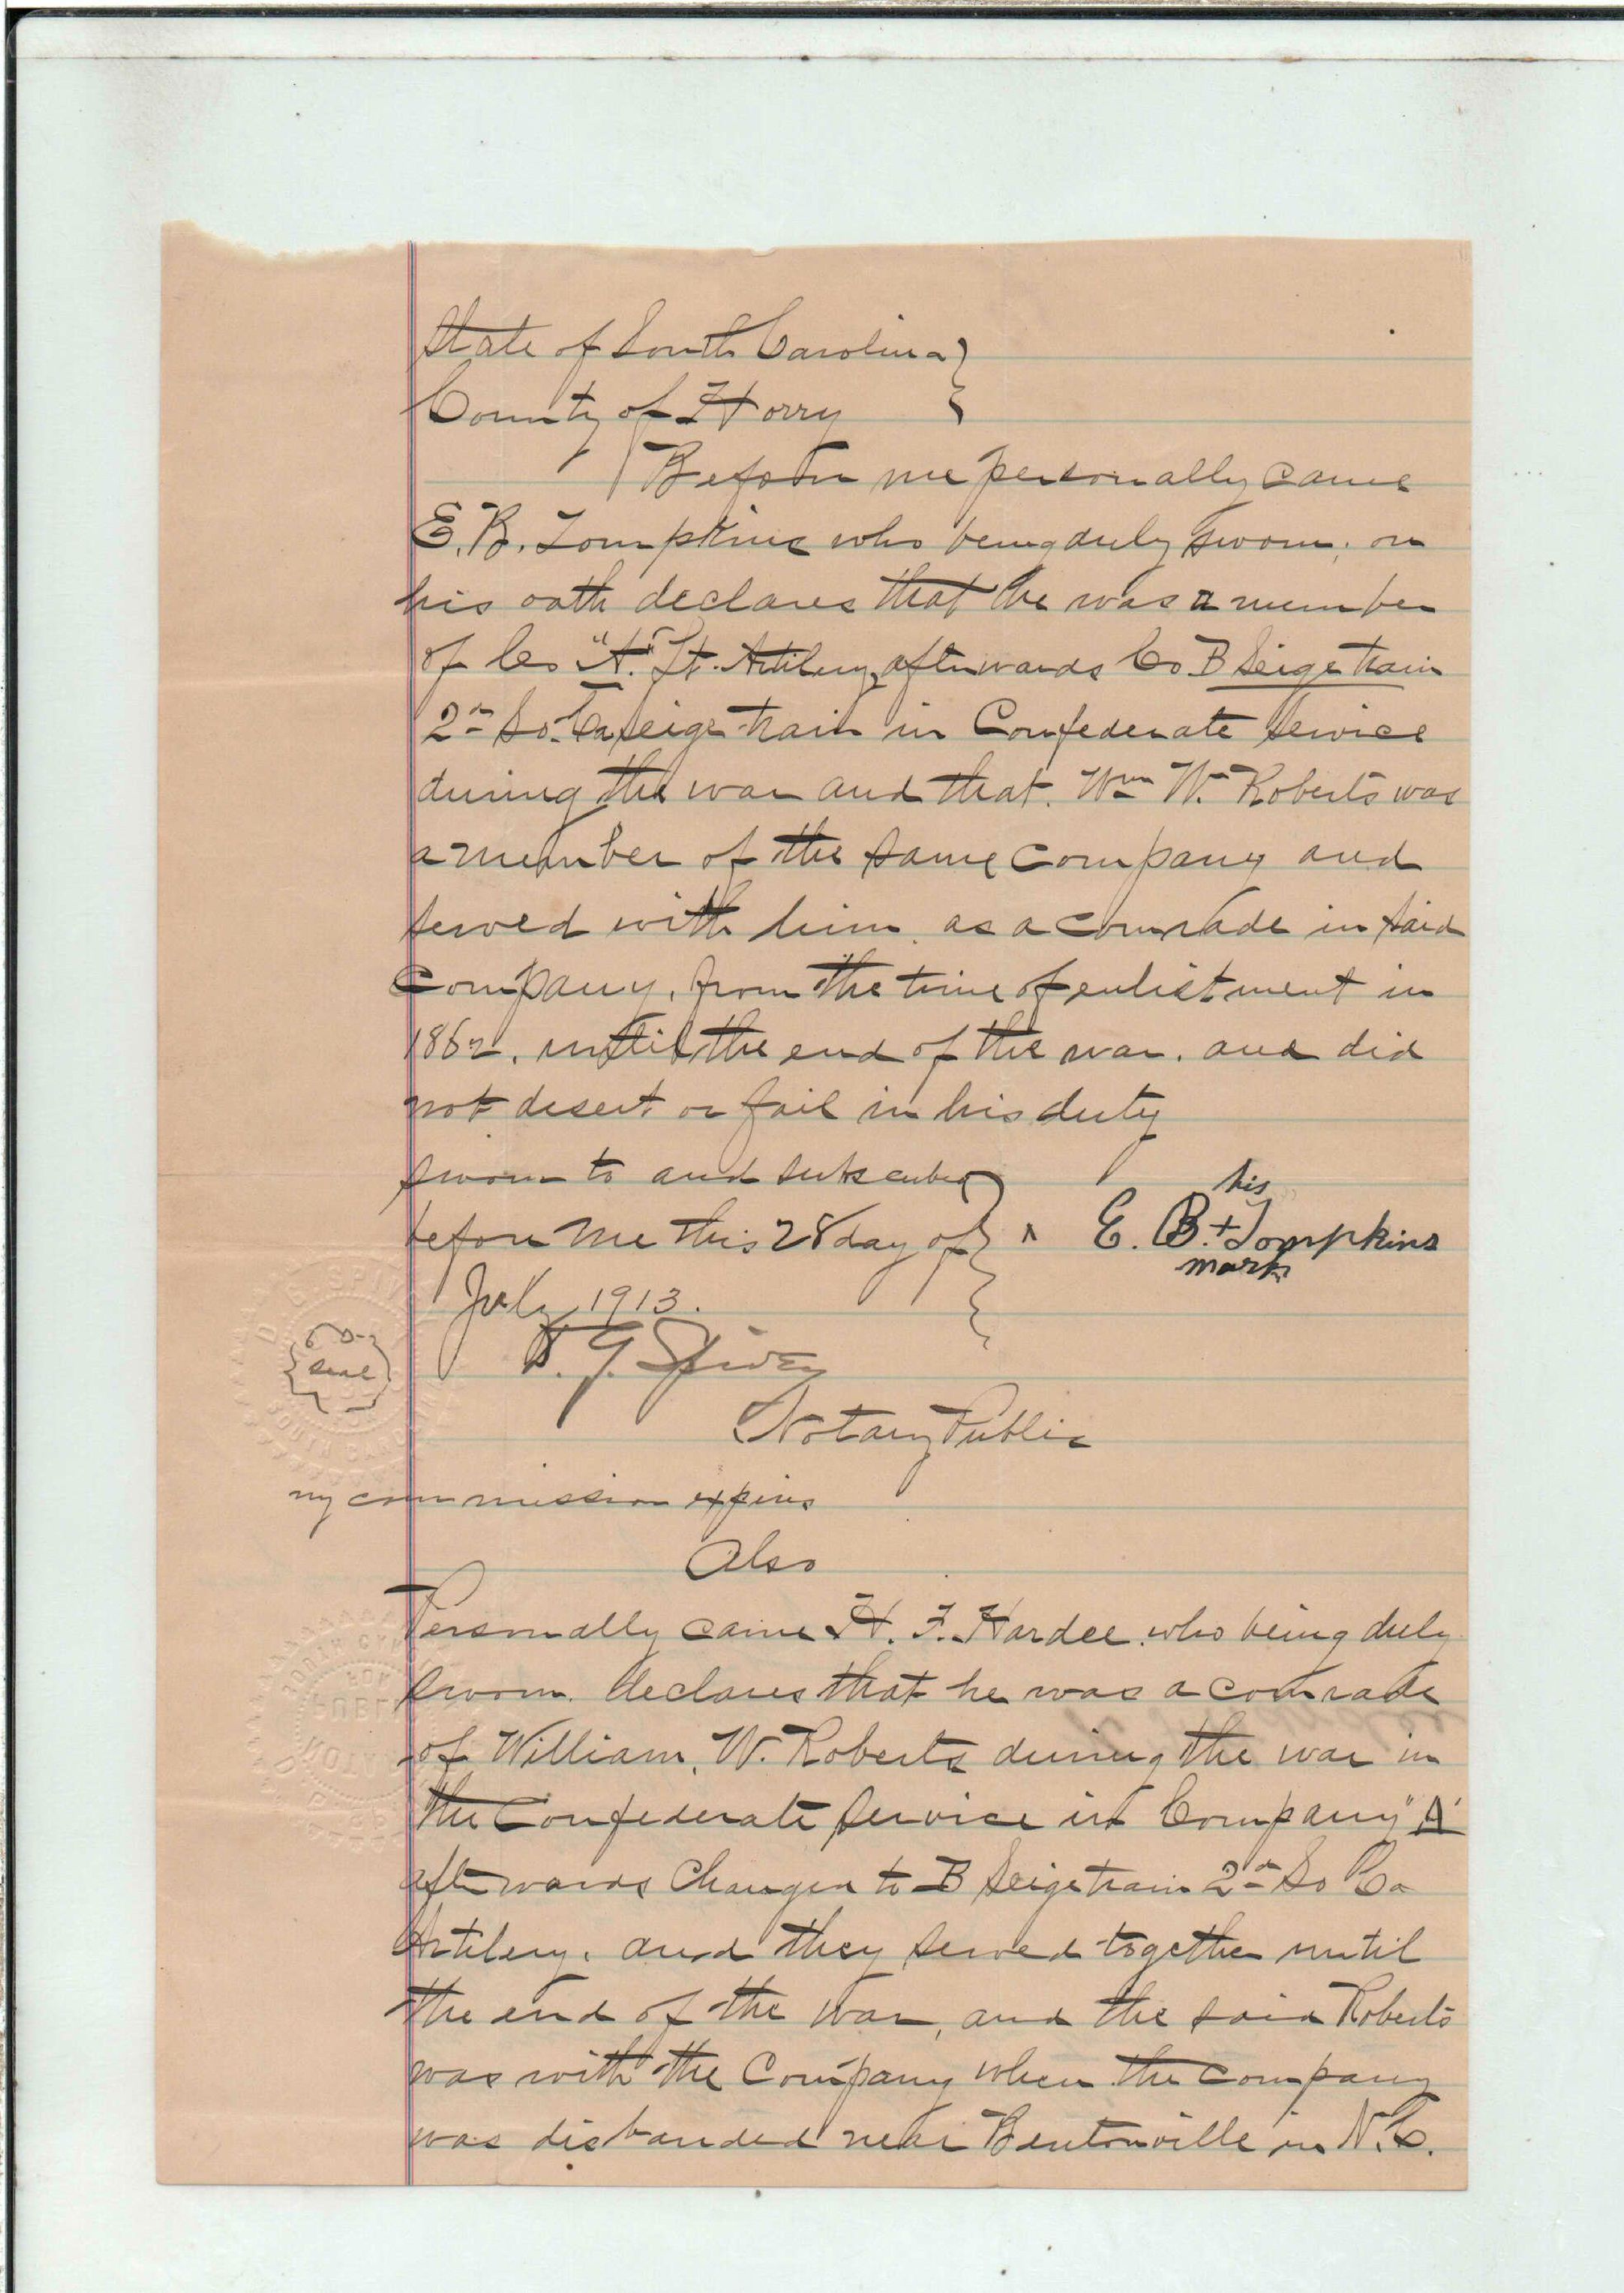 State of South Carolina }
County of Horry }
Before me personally came
E. B. Tompkins who being duly sworn, on
his oath declares that he was a member
of Co "A" Lt. Artilery, afterwards Co B Seige train
2nd So. Ca seige train in Confederate Service
during the war and that. Wm W. Roberts was
a member of the same company and
served with him. as a comrade in said
Company, from the time of enlistment in
1862, until the end of the war. and did
not desert or fail in his duty
sworn to and subscribed
before me this 28 day of
July 1913.
his
E. B. + Tompkins
mark
Seal
D. G. Spivey
Notary Public
my commission expires
Also
Personally came H. F. Hardee who being duly
sworn. declares that he was a comrade
of William, W. Roberts during the war in
the Confederate service in Company "A"
afterwards Changed to B Seige train 2nd So Ca
Artilery. and they served together until
the end of the war, and the said Roberts
was with the Company when the company
was disbanded near Bentonville in N.C.